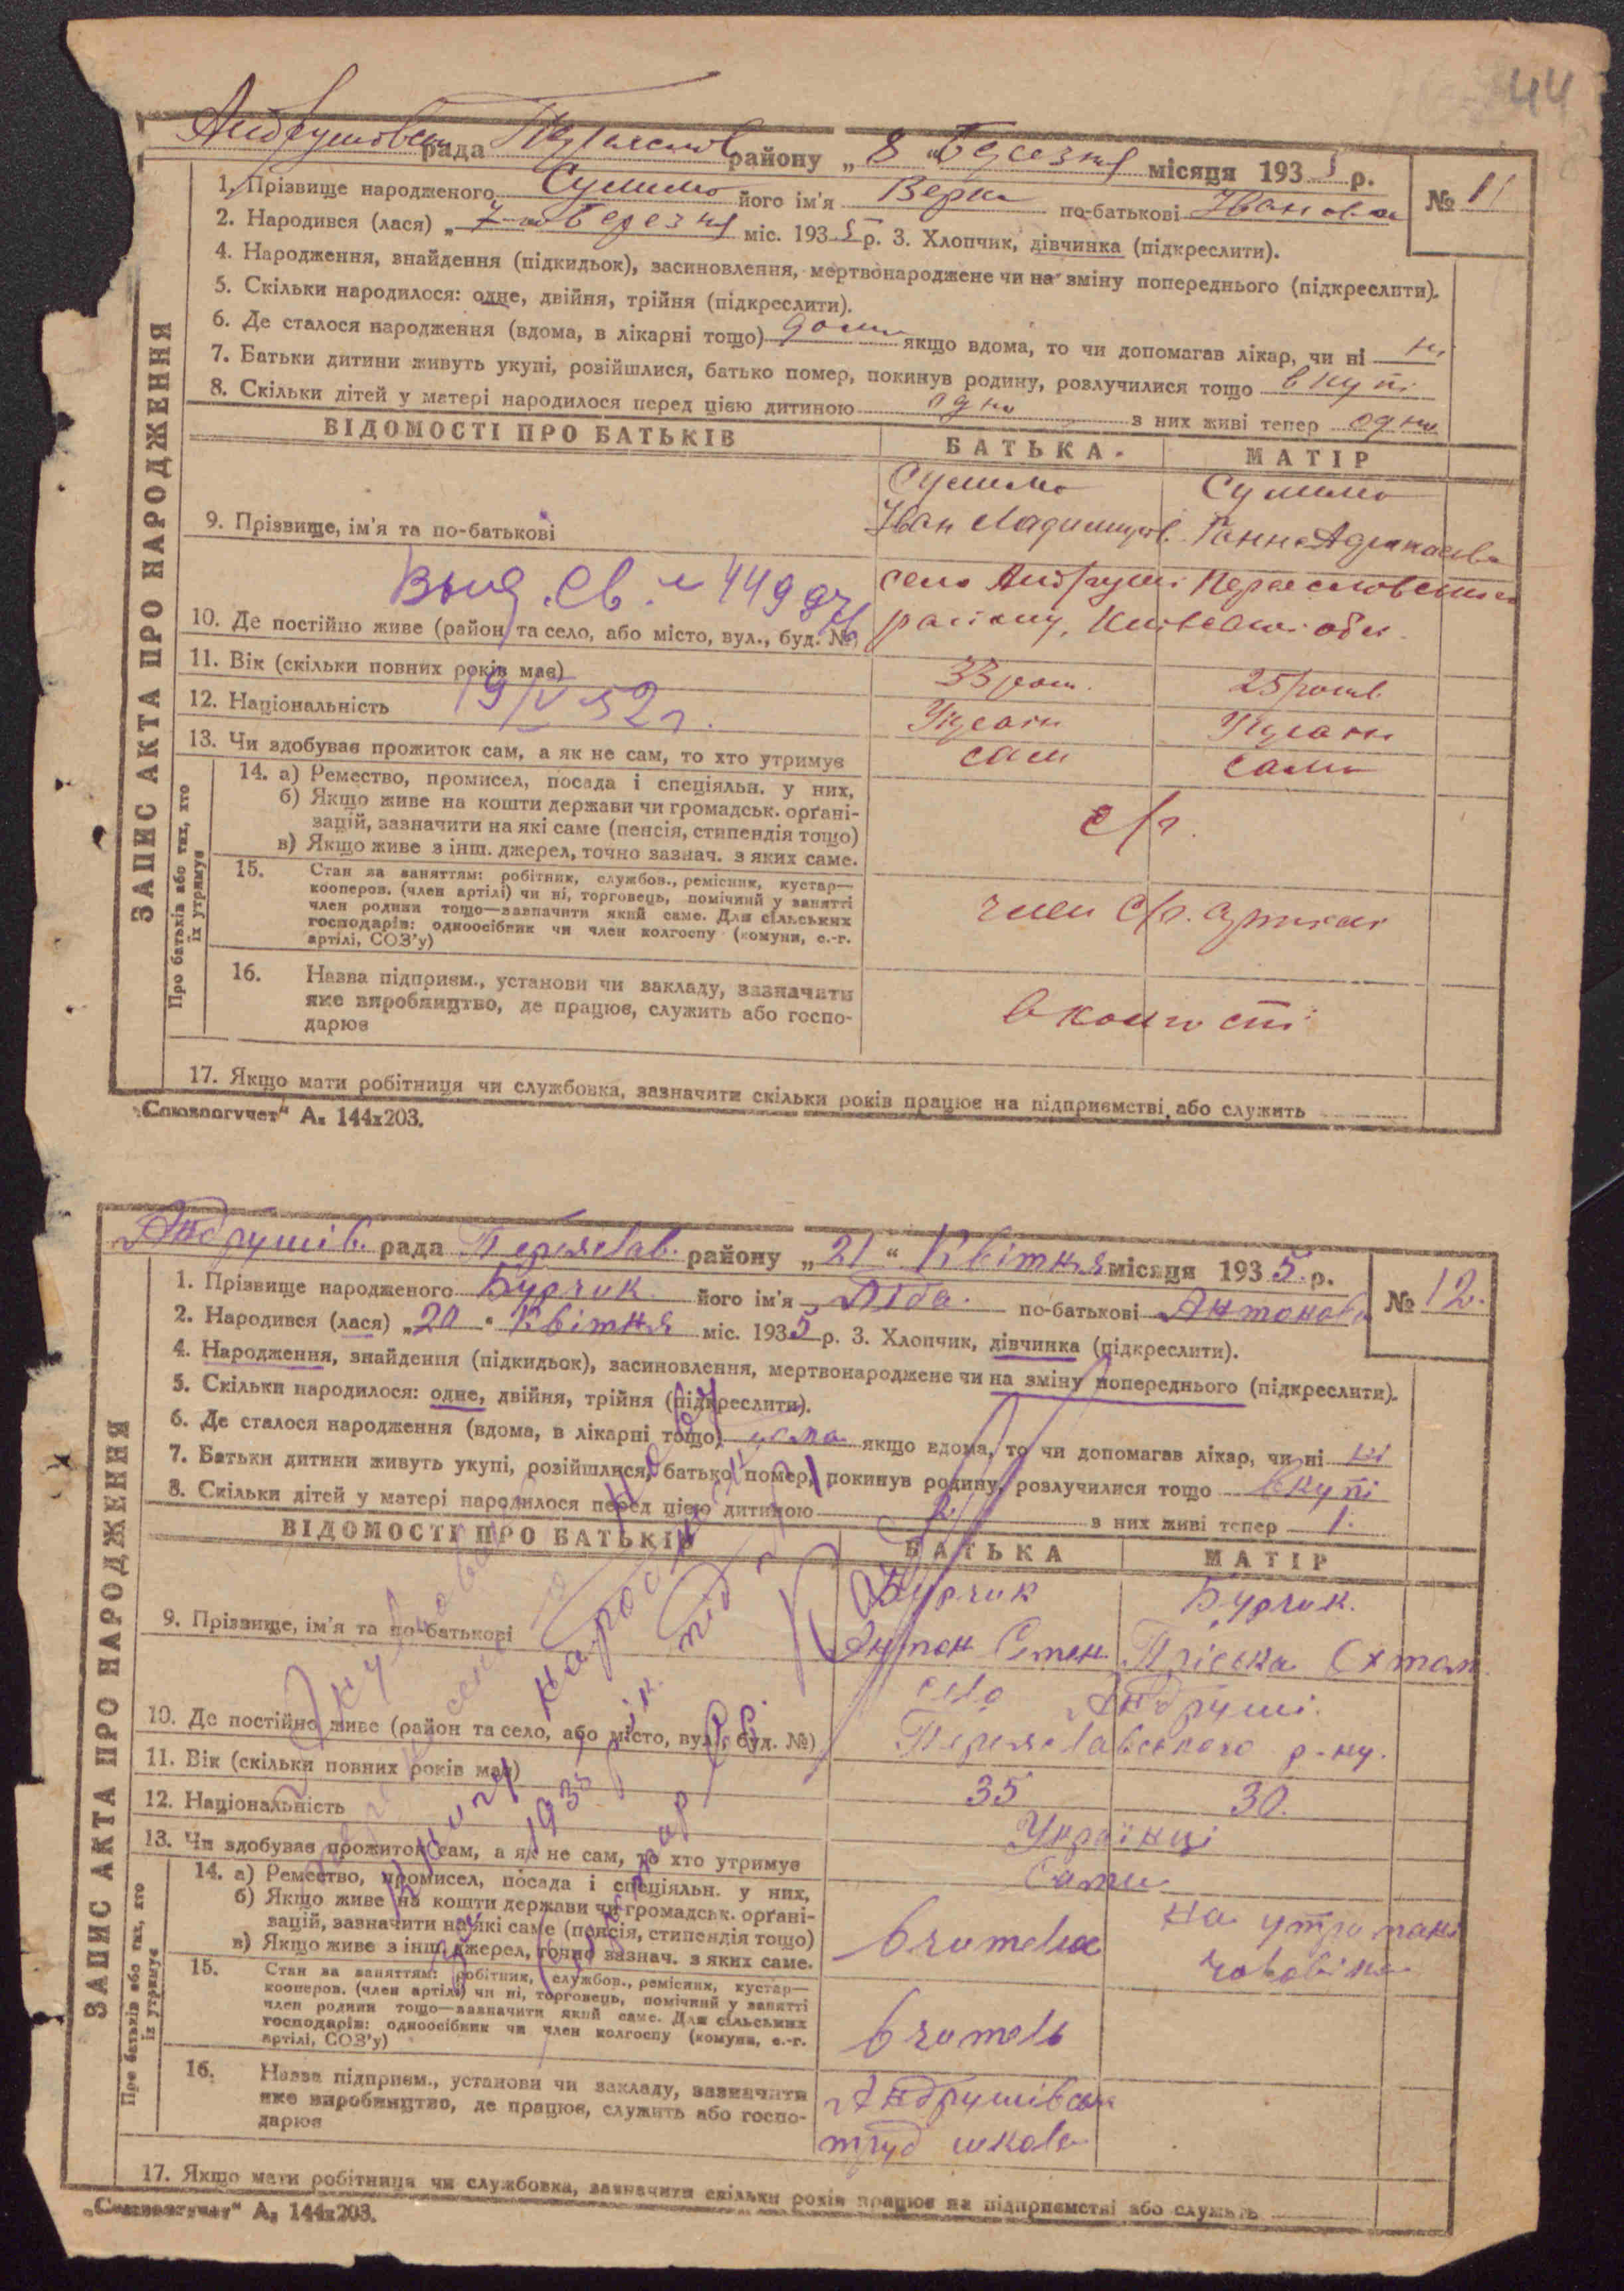 44
рада району „ 8 " Березня місяця 193 5 р.
№ 11
1. Прізвище народженого Сулима його ім'я Вера по-батькові Іванова
2. Народився (лася) „ 7 " Березня міс. 193 5 р. 3. Хлопчик, дівчинка (підкреслити).
4. Народження, знайдення (підкидьок), засиновлення, мертвонароджене чи на зміну попереднього (підкреслити).
5. Скільки народилося: одне, двійня, трійня (підкреслити).
6. Де сталося народження (вдома, в лікарні тощо) дома якщо вдома, то чи допомагав лікар, чи ні ні
7. Батьки дитини живуть укупі, розійшлися, батько помер, покинув родину, розлучилися тощо вкупі
8. Скільки дітей у матері народилося перед цією дитиною одно з них живі тепер одно
ЗАПИС АКТА ПРО НАРОДЖЕННЯ
ВІДОМОСТІ ПРО БАТЬКІВ БАТЬКА МАТІР
Сулима Сулима
9. Прізвище, ім'я та по-батькові Іван Ганна
Выд. св. 449
село Андруші
10. Де постійно живе (район та село, або місто, вул., буд. №) району, Київської обл.
11. Вік (скільки повних років має) 33 25
19/IV 52 г.
12. Національність
13. Чи здобуває прожиток сам, а як не сам, то хто утримує сам сама
Про батьків або тих, хто їх утримує
14. а) Ремество, промисел, посада і спеціяльн. у них,
б) Якщо живе на кошти держави чи громадськ. органі-
зацій, зазначити на які саме (пенсія, стипендія тощо) с/г.
в) Якщо живе з інш. джерел, точно зазнач. з яких саме.
15. Стан за заняттям: робітник, службов., ремісник, кустар—
кооперов. (член артілі) чи ні, торговець, помічний у занятті
член родини тощо—зазначити який саме. Для сільських
господарів: одноосібник чи член колгоспу (комуни, с.-г.
артілі, СОЗ'у)
член с/г.
16. Назва підприєм., установи чи закладу, зазначити
яке виробництво, де працює, служить або госпо-
дарює
17. Якщо мати робітниця чи службовка, зазначити скільки років працює на підприємстві або служить
„Союзоргучет" А₅ 144х203.
Андрушів. рада Переяслав. району „ 21 " Квітня місяця 193 5. р.
№ 12.
1. Прізвище народженого Бурчик його ім'я Ліда. по-батькові Антонова
2. Народився (лася) „ 20 " Квітня міс. 193 5 р. 3. Хлопчик, дівчинка (підкреслити).
4. Народження, знайдення (підкидьок), засиновлення, мертвонароджене чи на зміну попереднього (підкреслити).
5. Скільки народилося: одне, двійня, трійня (підкреслити).
6. Де сталося народження (вдома, в лікарні тощо) якщо вдома, то чи допомагав лікар, чи ні ні
7. Батьки дитини живуть укупі, розійшлися, батько помер, покинув родину, розлучилися тощо вкупі
8. Скільки дітей у матері народилося перед цією дитиною 2 з них живі тепер 1.
ЗАПИС АКТА ПРО НАРОДЖЕННЯ
ВІДОМОСТІ ПРО БАТЬКІВ БАТЬКА МАТІР
Бурчик Бурчик.
9. Прізвище, ім'я та по-батькові Антон Семен.
село Андруші.
10. Де постійно живе (район та село, або місто, вул., буд. №) Переяславського р-ну.
11. Вік (скільки повних років має) 35 30.
12. Національність Українці
13. Чи здобуває прожиток сам, а як не сам, то хто утримує Сами
Про батьків або тих, хто їх утримує
14. а) Ремество, промисел, посада і спеціяльн. у них, на утриманні
б) Якщо живе на кошти держави чи громадськ. органі-
зацій, зазначити на які саме (пенсія, стипендія тощо) вчитель чоловіка
в) Якщо живе з інш. джерел, точно зазнач. з яких саме.
15. Стан за заняттям: робітник, службов., ремісник, кустар—
кооперов. (член артілі) чи ні, торговець, помічний у занятті
член родини тощо—зазначити який саме. Для сільських
господарів: одноосібник чи член колгоспу (комуни, с.-г.
артілі, СОЗ'у)
вчитель
16. Назва підприєм., установи чи закладу, зазначити
яке виробництво, де працює, служить або госпо-
дарює
Андрушівська
труд школа
17. Якщо мати робітниця чи службовка, зазначити скільки років працює на підприємстві або служить
„Союзоргучет" А₅ 144х203.